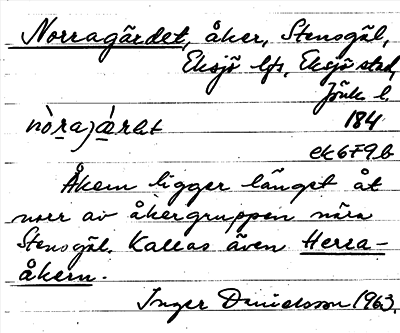 Norragärdet, åker, Stensgäl,
Eksjö lfs, Eksjö stad,
Jönk l.
nòrajæ̀rdet 184
ek679b
Åkern ligger längst åt
norr av åkergruppen nära
Stensgäl. Kallas även Herra-
åkern.
Inger Danielsson 1963.